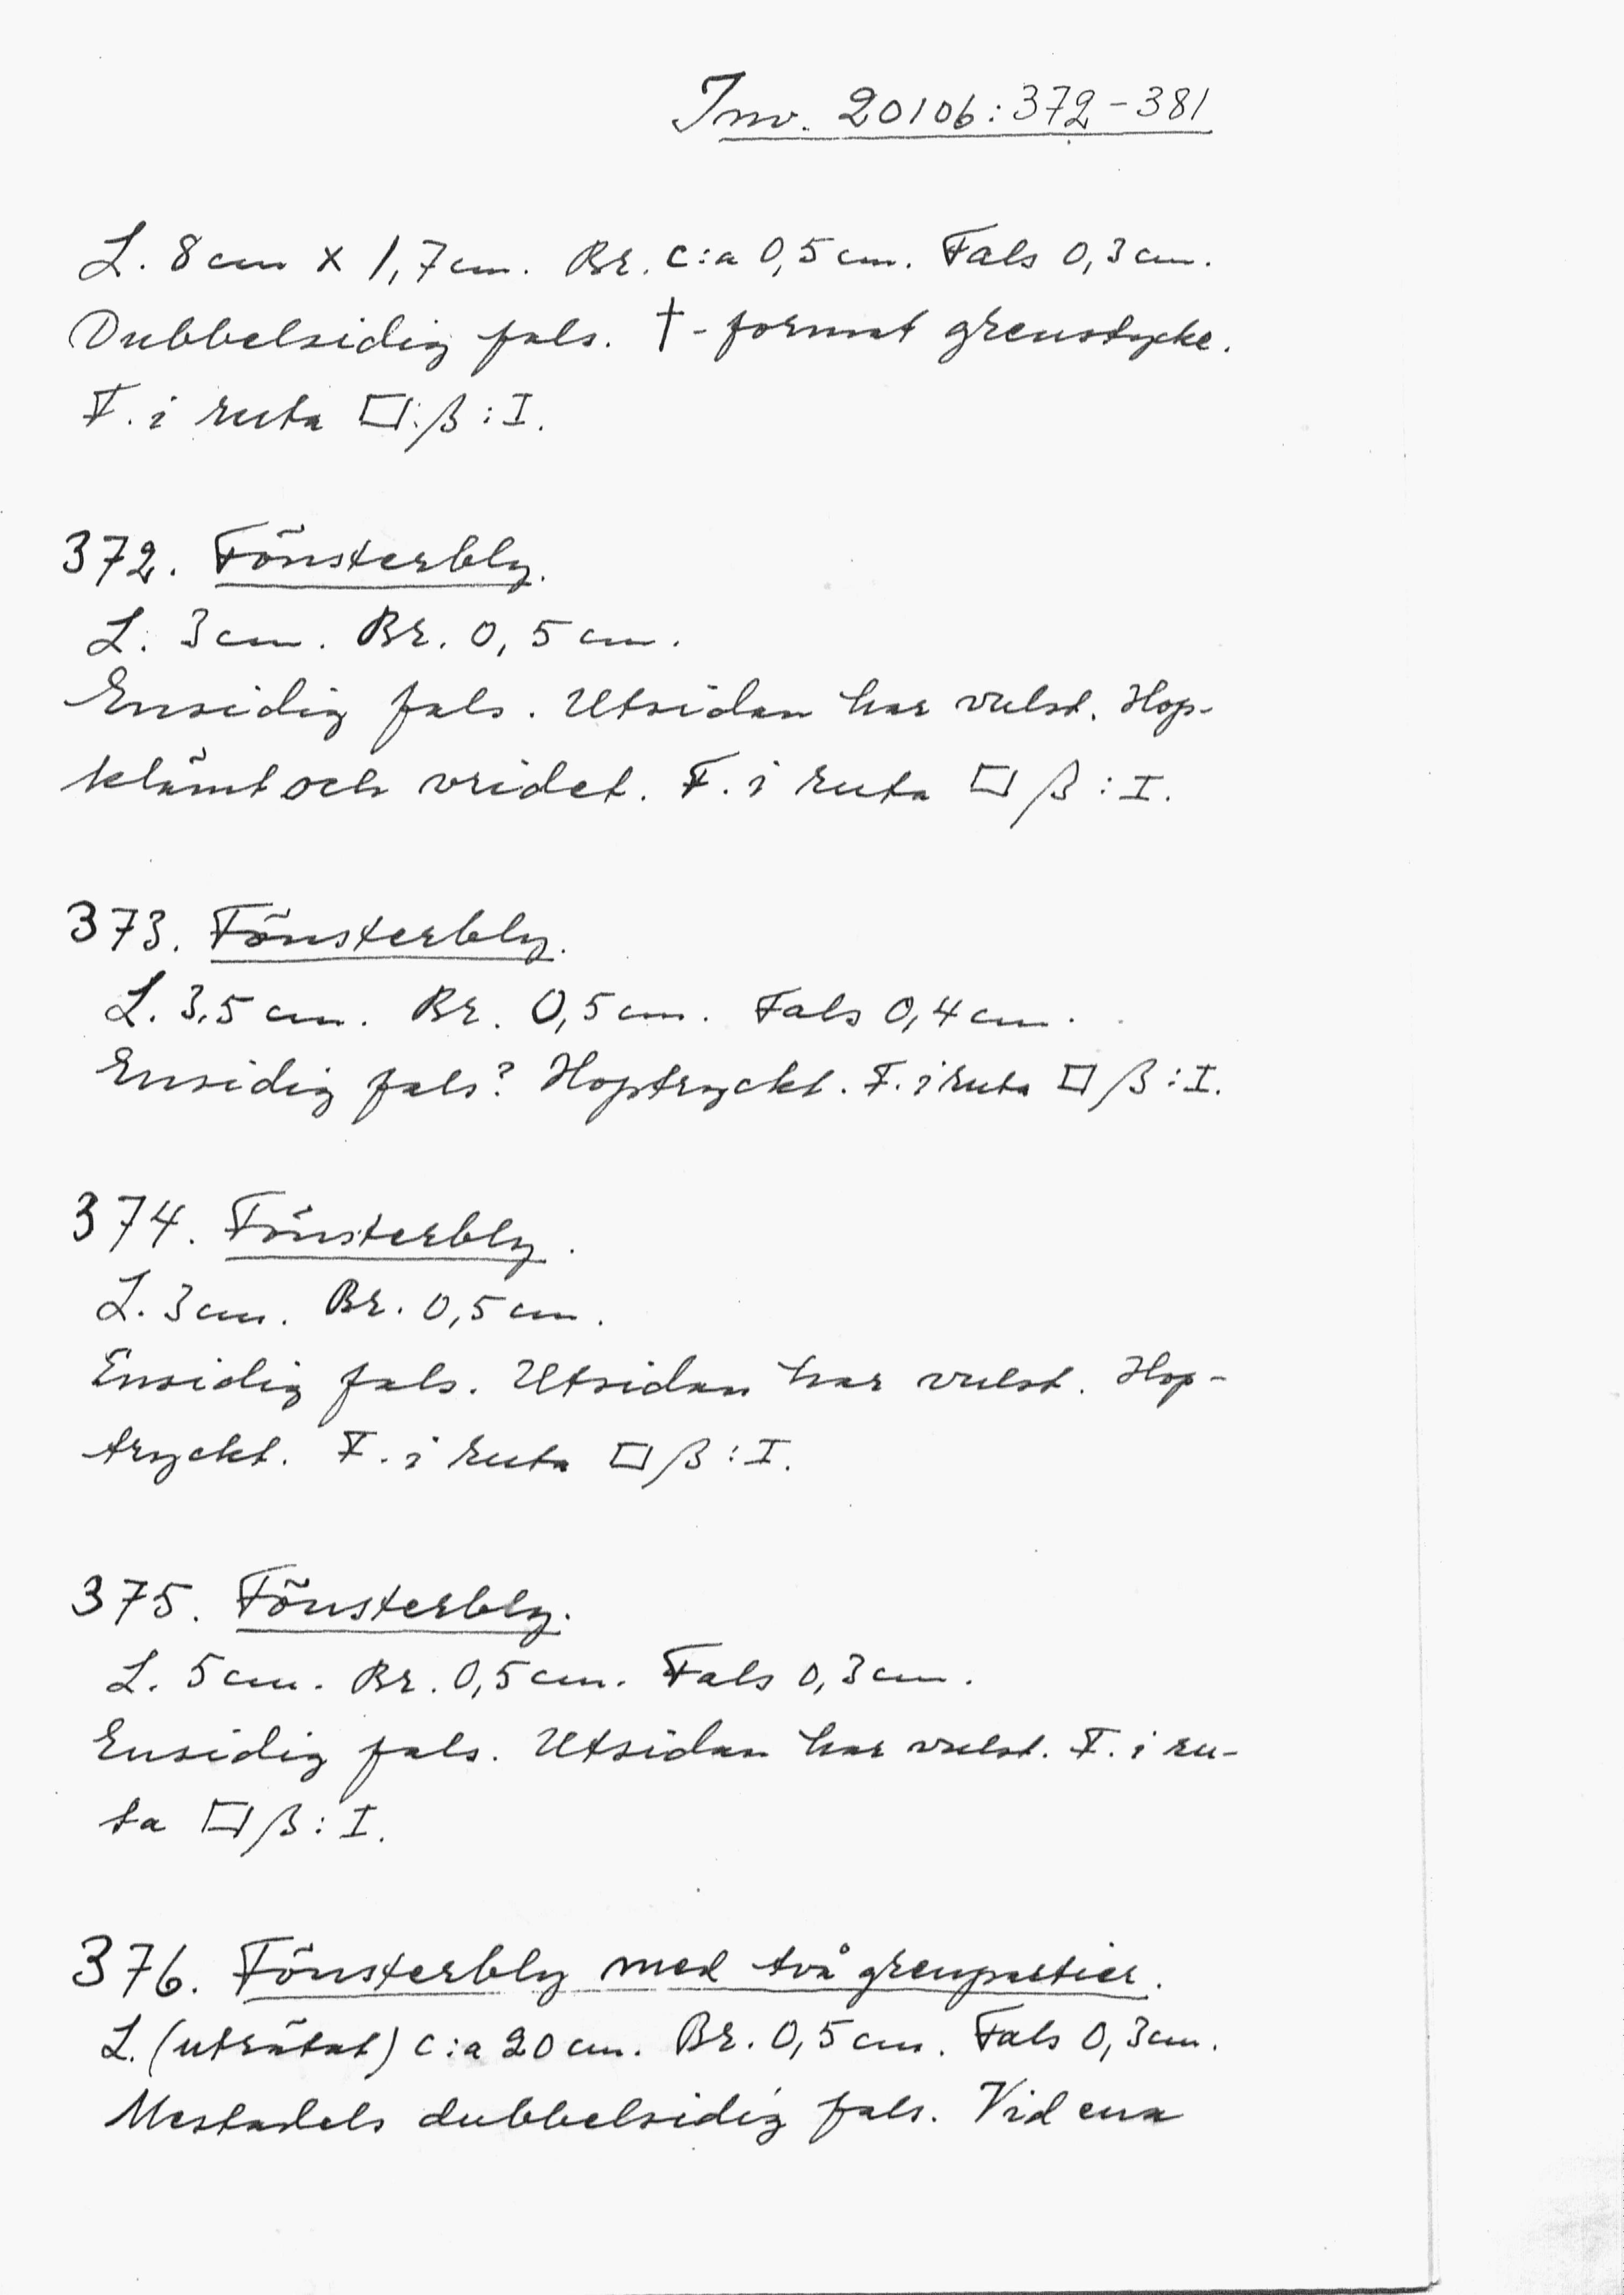 Inv. 20106:372-381
L. 8 cm x 1,7 cm. Br. c:a 0,5 cm. Fals 0,3 cm.
Dubbelsidig fals. †-format grenstycke.
F. i ruta □:β:I.
372. Fönsterbly.
L. 3 cm. Br. 0,5 cm.
Ensidig fals. Utsidan har vulst. Hop-
klämt och vridet. F. i ruta □ β:I.
373. Fönsterbly.
L. 3,5 cm. Br. 0,5 cm. Fals 0,4 cm.
Ensidig fals? Hoptryckt. F. i ruta □ β:I.
374. Fönsterbly.
L. 3 cm. Br. 0,5 cm.
Ensidig fals. Utsidan har vulst. Hop-
tryckt. F. i ruta □ β:I.
375. Fönsterbly.
L. 5 cm. Br. 0,5 cm. Fals 0,3 cm.
Ensidig fals. Utsidan har vulst. F. i ru-
ta □ β:I.
376. Fönsterbly med två grenpartier.
L. (uträtat) c:a 20 cm. Br. 0,5 cm. Fals 0,3 cm.
Mestadels dubbelsidig fals. Vid ena